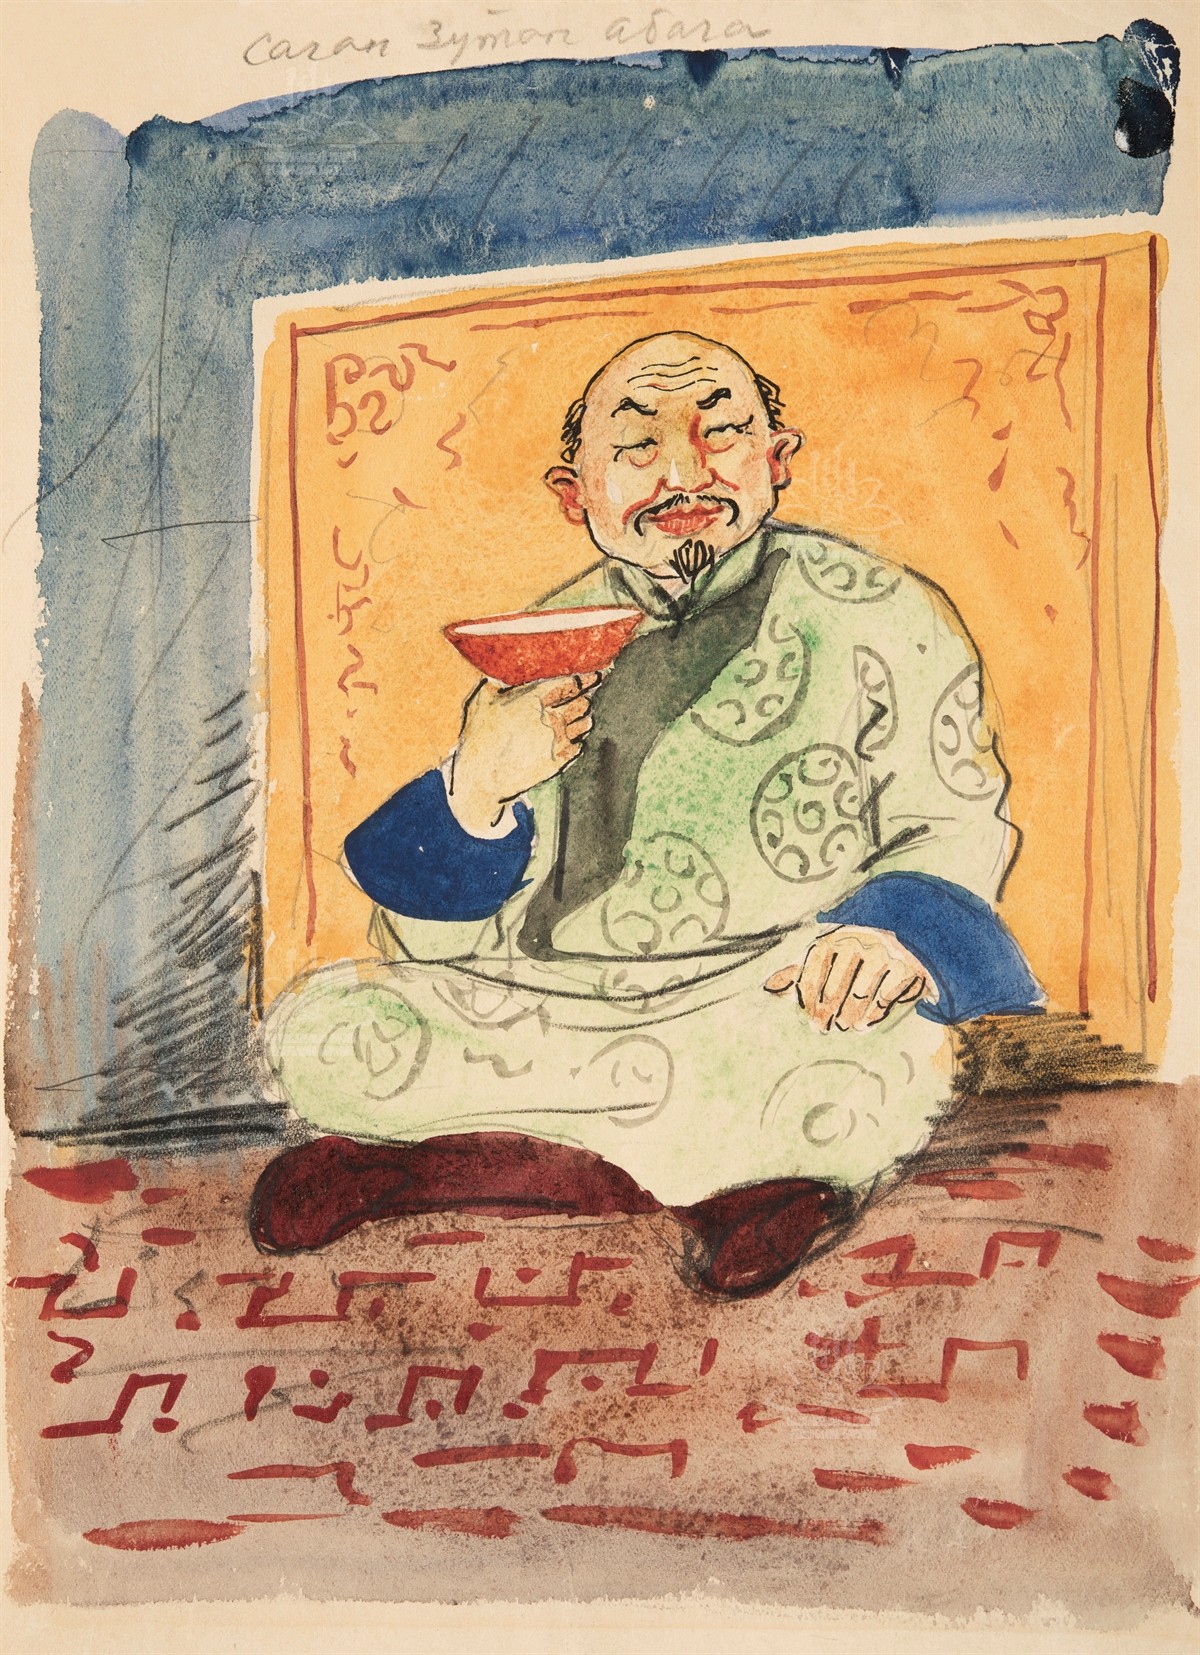 Саган Зутан абага